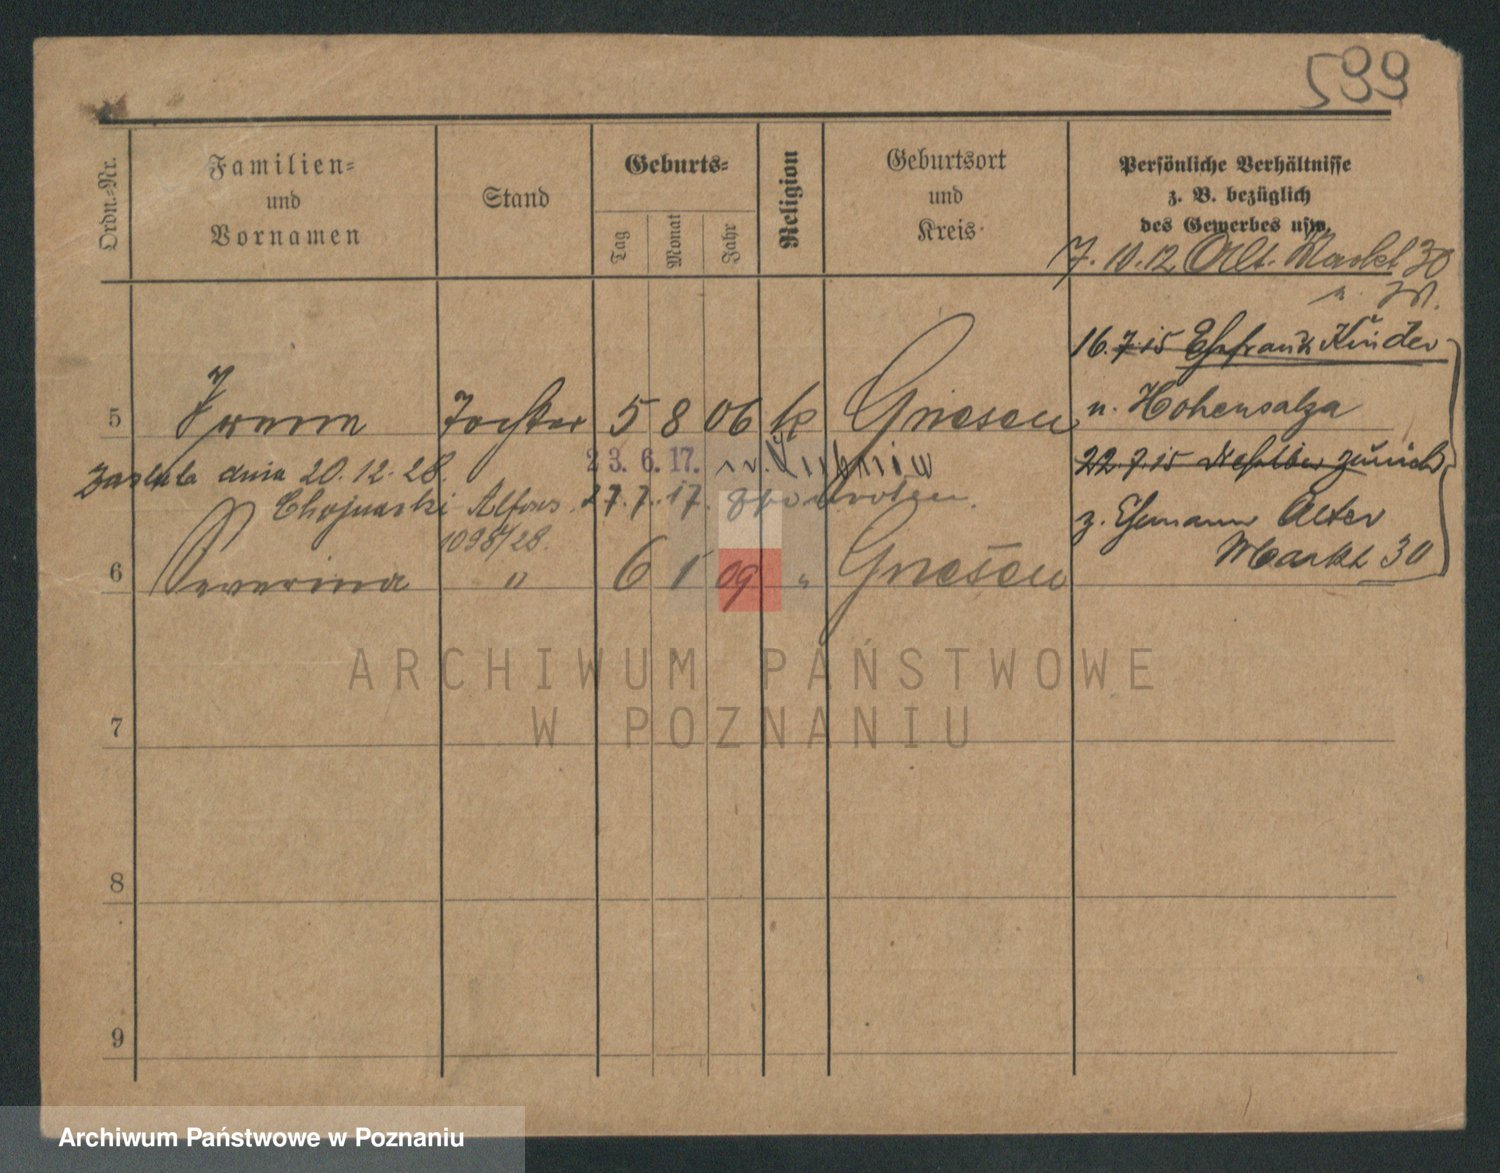 599
Ordn.-Nr.
Familien-
und
Vornamen
Stand
Geburts-
Tag
Monat
Jahr
Religion
Geburtsort
und
Kreis
Persönliche Verhältnisse
z. B. bezüglich
des Gewerbes usw.
7.10.12 Alt. Markt 30
16.7.15 Ehefrau u Kinder
5 Irena Tochter 5 8 06 k Gnesen
n. Hohensalza
22.7.15 dieselben zurück
z. Ehemann Alter
Markt 30
dnia 20.12.28.
23.6.17.
Chojnacki Alfons
27.7.17.
1098/28.
6 Severina " 6 1 09 " Gnesen
7
8
9
ARCHIWUM PAŃSTWOWE
W POZNANIU
Archiwum Państwowe w Poznaniu